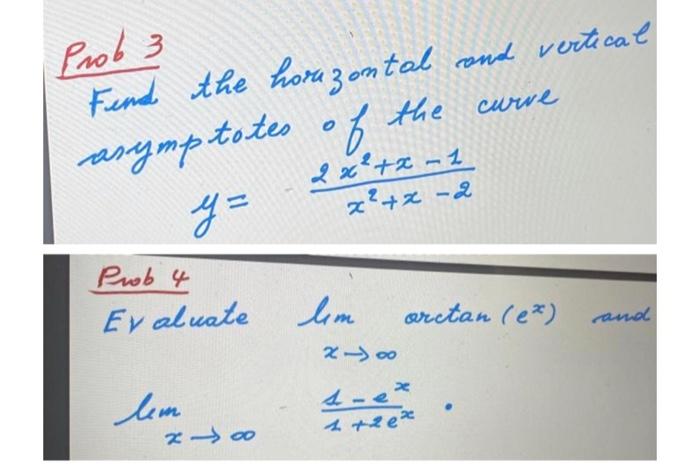 Prob 3
Find the horizontal and vertical
asymptotes of the curve
y = (2x²+x-1)/(x²+x-2)
Prob 4
Evaluate lim x→∞ arctan (eˣ) and
lim x→∞ (1-eˣ)/(1+2eˣ) .